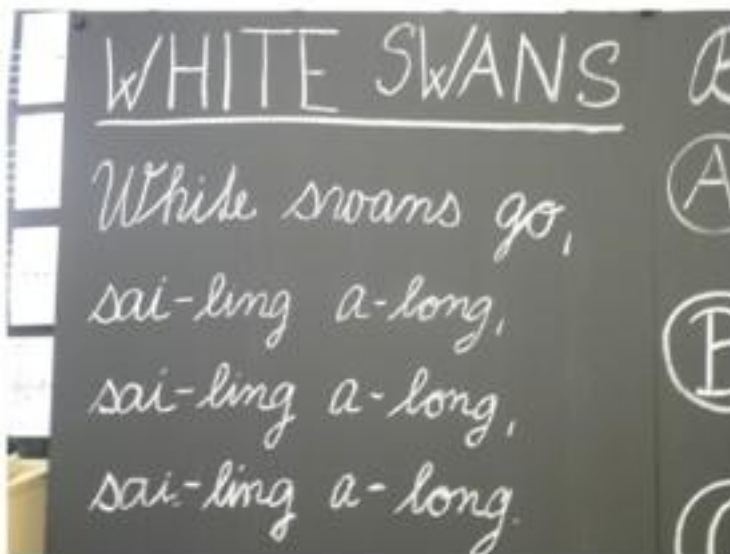 WHITE SWANS
White swans go,
sai-ling a-long,
sai-ling a-long,
sai-ling a-long.
A
B